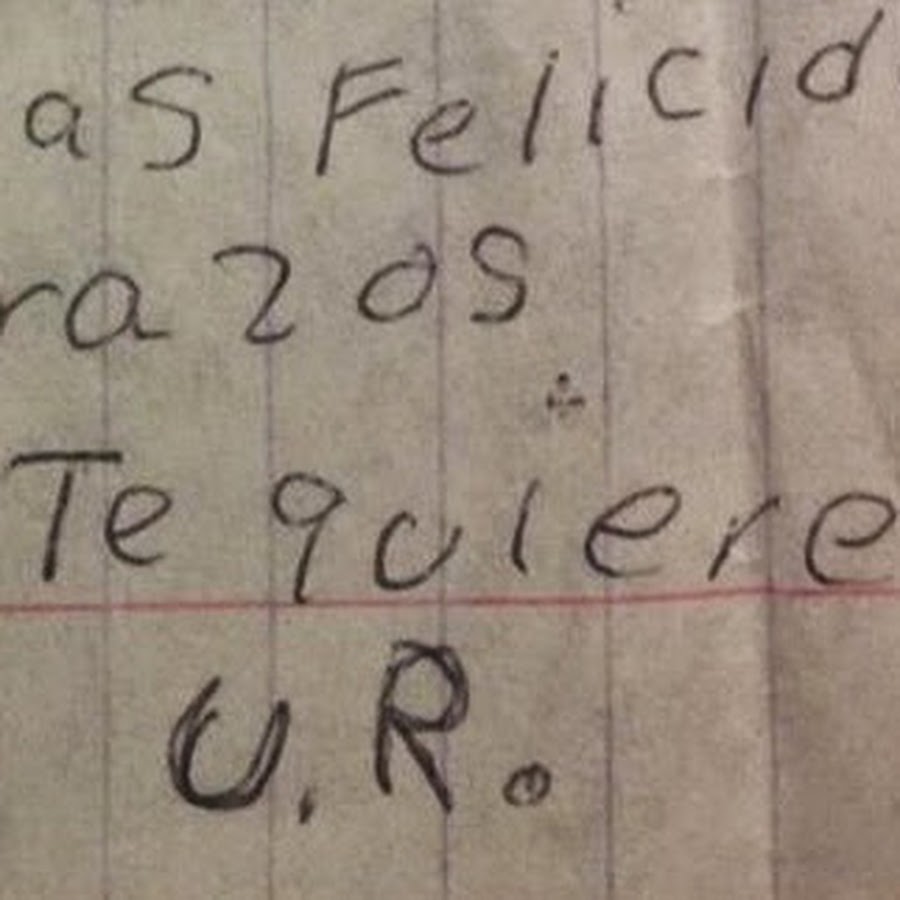 as Felicid
razos
Te quiere
U.R.